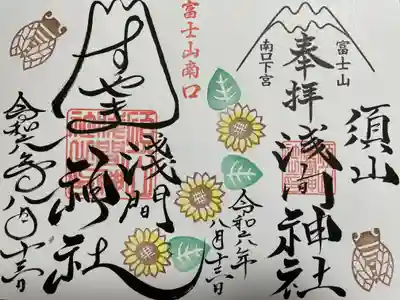 須山
浅間神社
奉拝
富士山
南口下宮
令和六年
八月十三日
富士山南口
すやま
浅間
神社
令和六年八月十三日